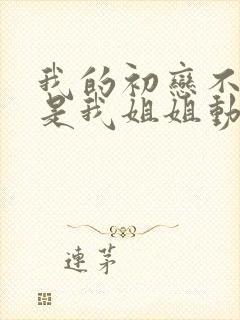 我的初戀不
是我姐姐動
連茅